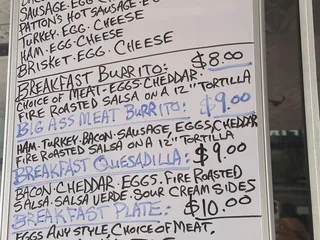 SAUSAGE·EGG·CHEE
PATTON'S HOT SAUSAGE·EG
TURKEY·EGG·CHEESE
HAM·EGG·CHEESE
BRISKET·EGG·CHEESE
BREAKFAST BURRITO: $8.00
CHOICE OF MEAT-EGGS·CHEDDAR·
FIRE ROASTED SALSA ON A 12" TORTILLA
BIG ASS MEAT BURRITO: $9.00
HAM·TURKEY·BACON·SAUSAGE, EGGS, CHEDDAR
FIRE ROASTED SALSA ON A 12" TORTILLA
BREAKFAST QUESADILLA: $9.00
BACON·CHEDDAR·EGGS·FIRE ROASTED
SALSA·SALSA VERDE·SOUR CREAM SIDES
BREAKFAST PLATE: $10.00
EGGS ANY STYLE, CHOICE OF MEAT,